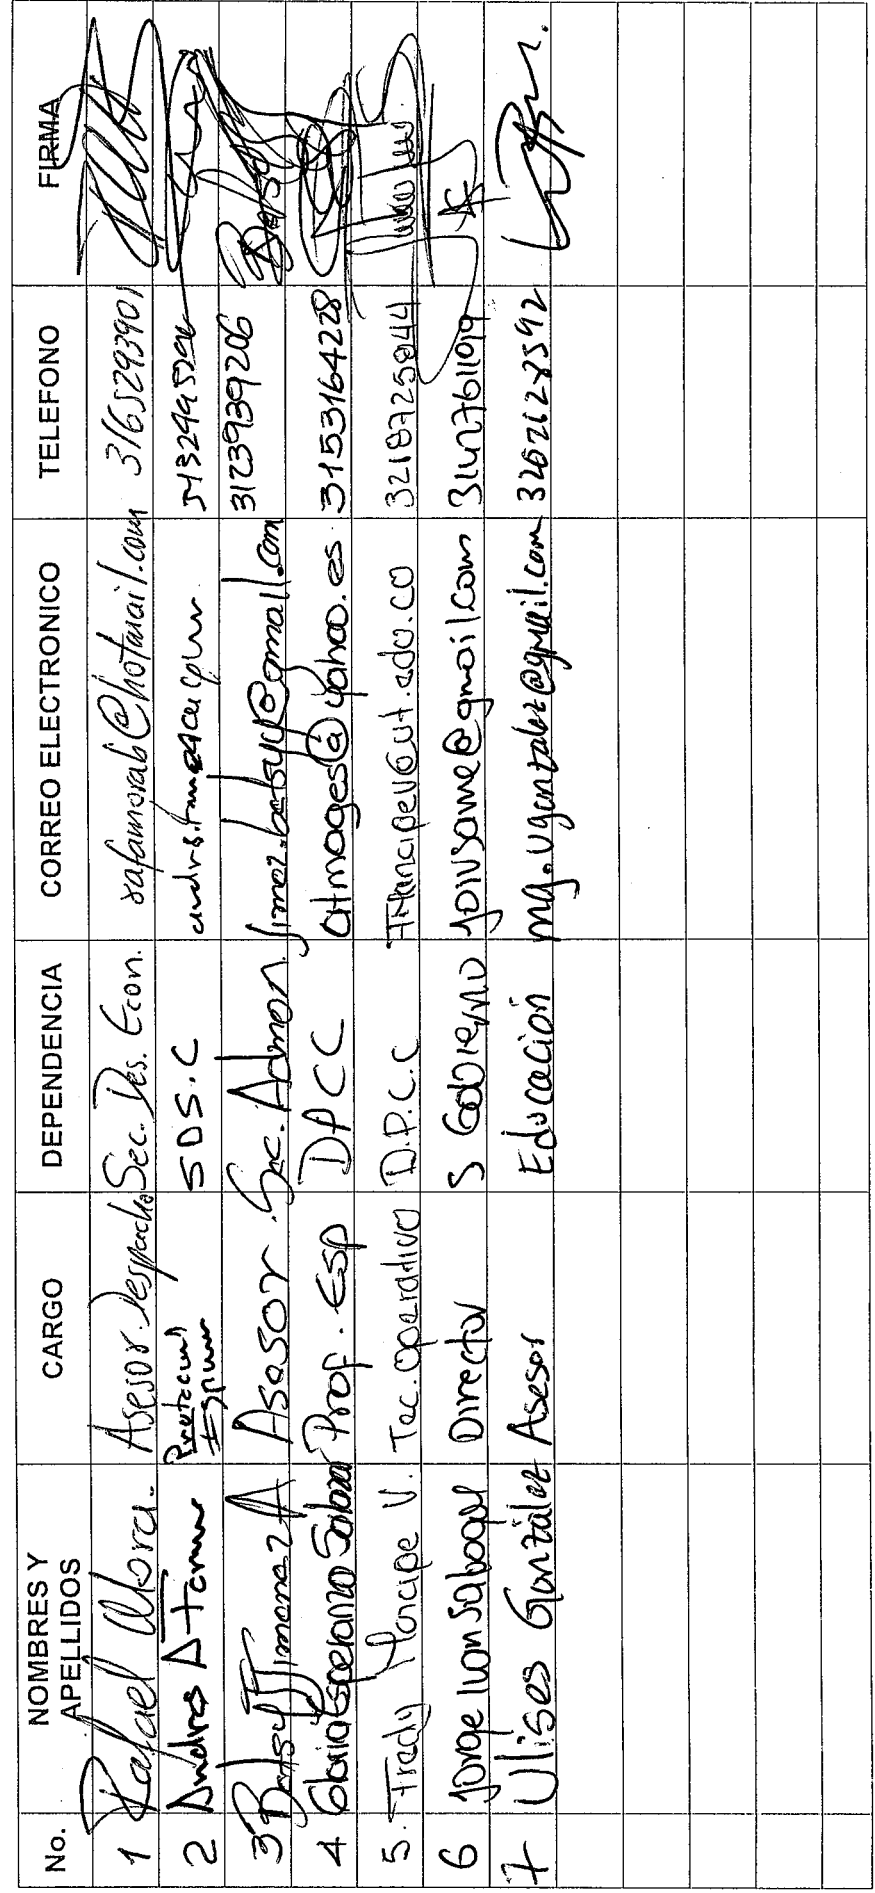 No. NOMBRES Y APELLIDOS CARGO DEPENDENCIA CORREO ELECTRONICO TELEFONO FIRMA
1 Rafael Mora. Asesor Despacho Sec. Des. Econ. rafamorab@hotmail.com 3165293901
2 Andres D SDS.C
3 Betsy Jimenez A Asesor Sec. Admon. jimez.betsy@gmail.com 3123939206
4 Gloria Esperanza Salazar Prof. Esp DPCC atmoges@yahoo.es 3153164228
5. Fredy Mancipe V. Tec. Operativo D.P.C.C FMancipev@ut.edu.co 3218725844
6 Jorge Ivan Sabogal Director S Gobierno joivsame@gmail.com
7 Ulises González Asesor Educación mg.ugonzalez@gmail.com